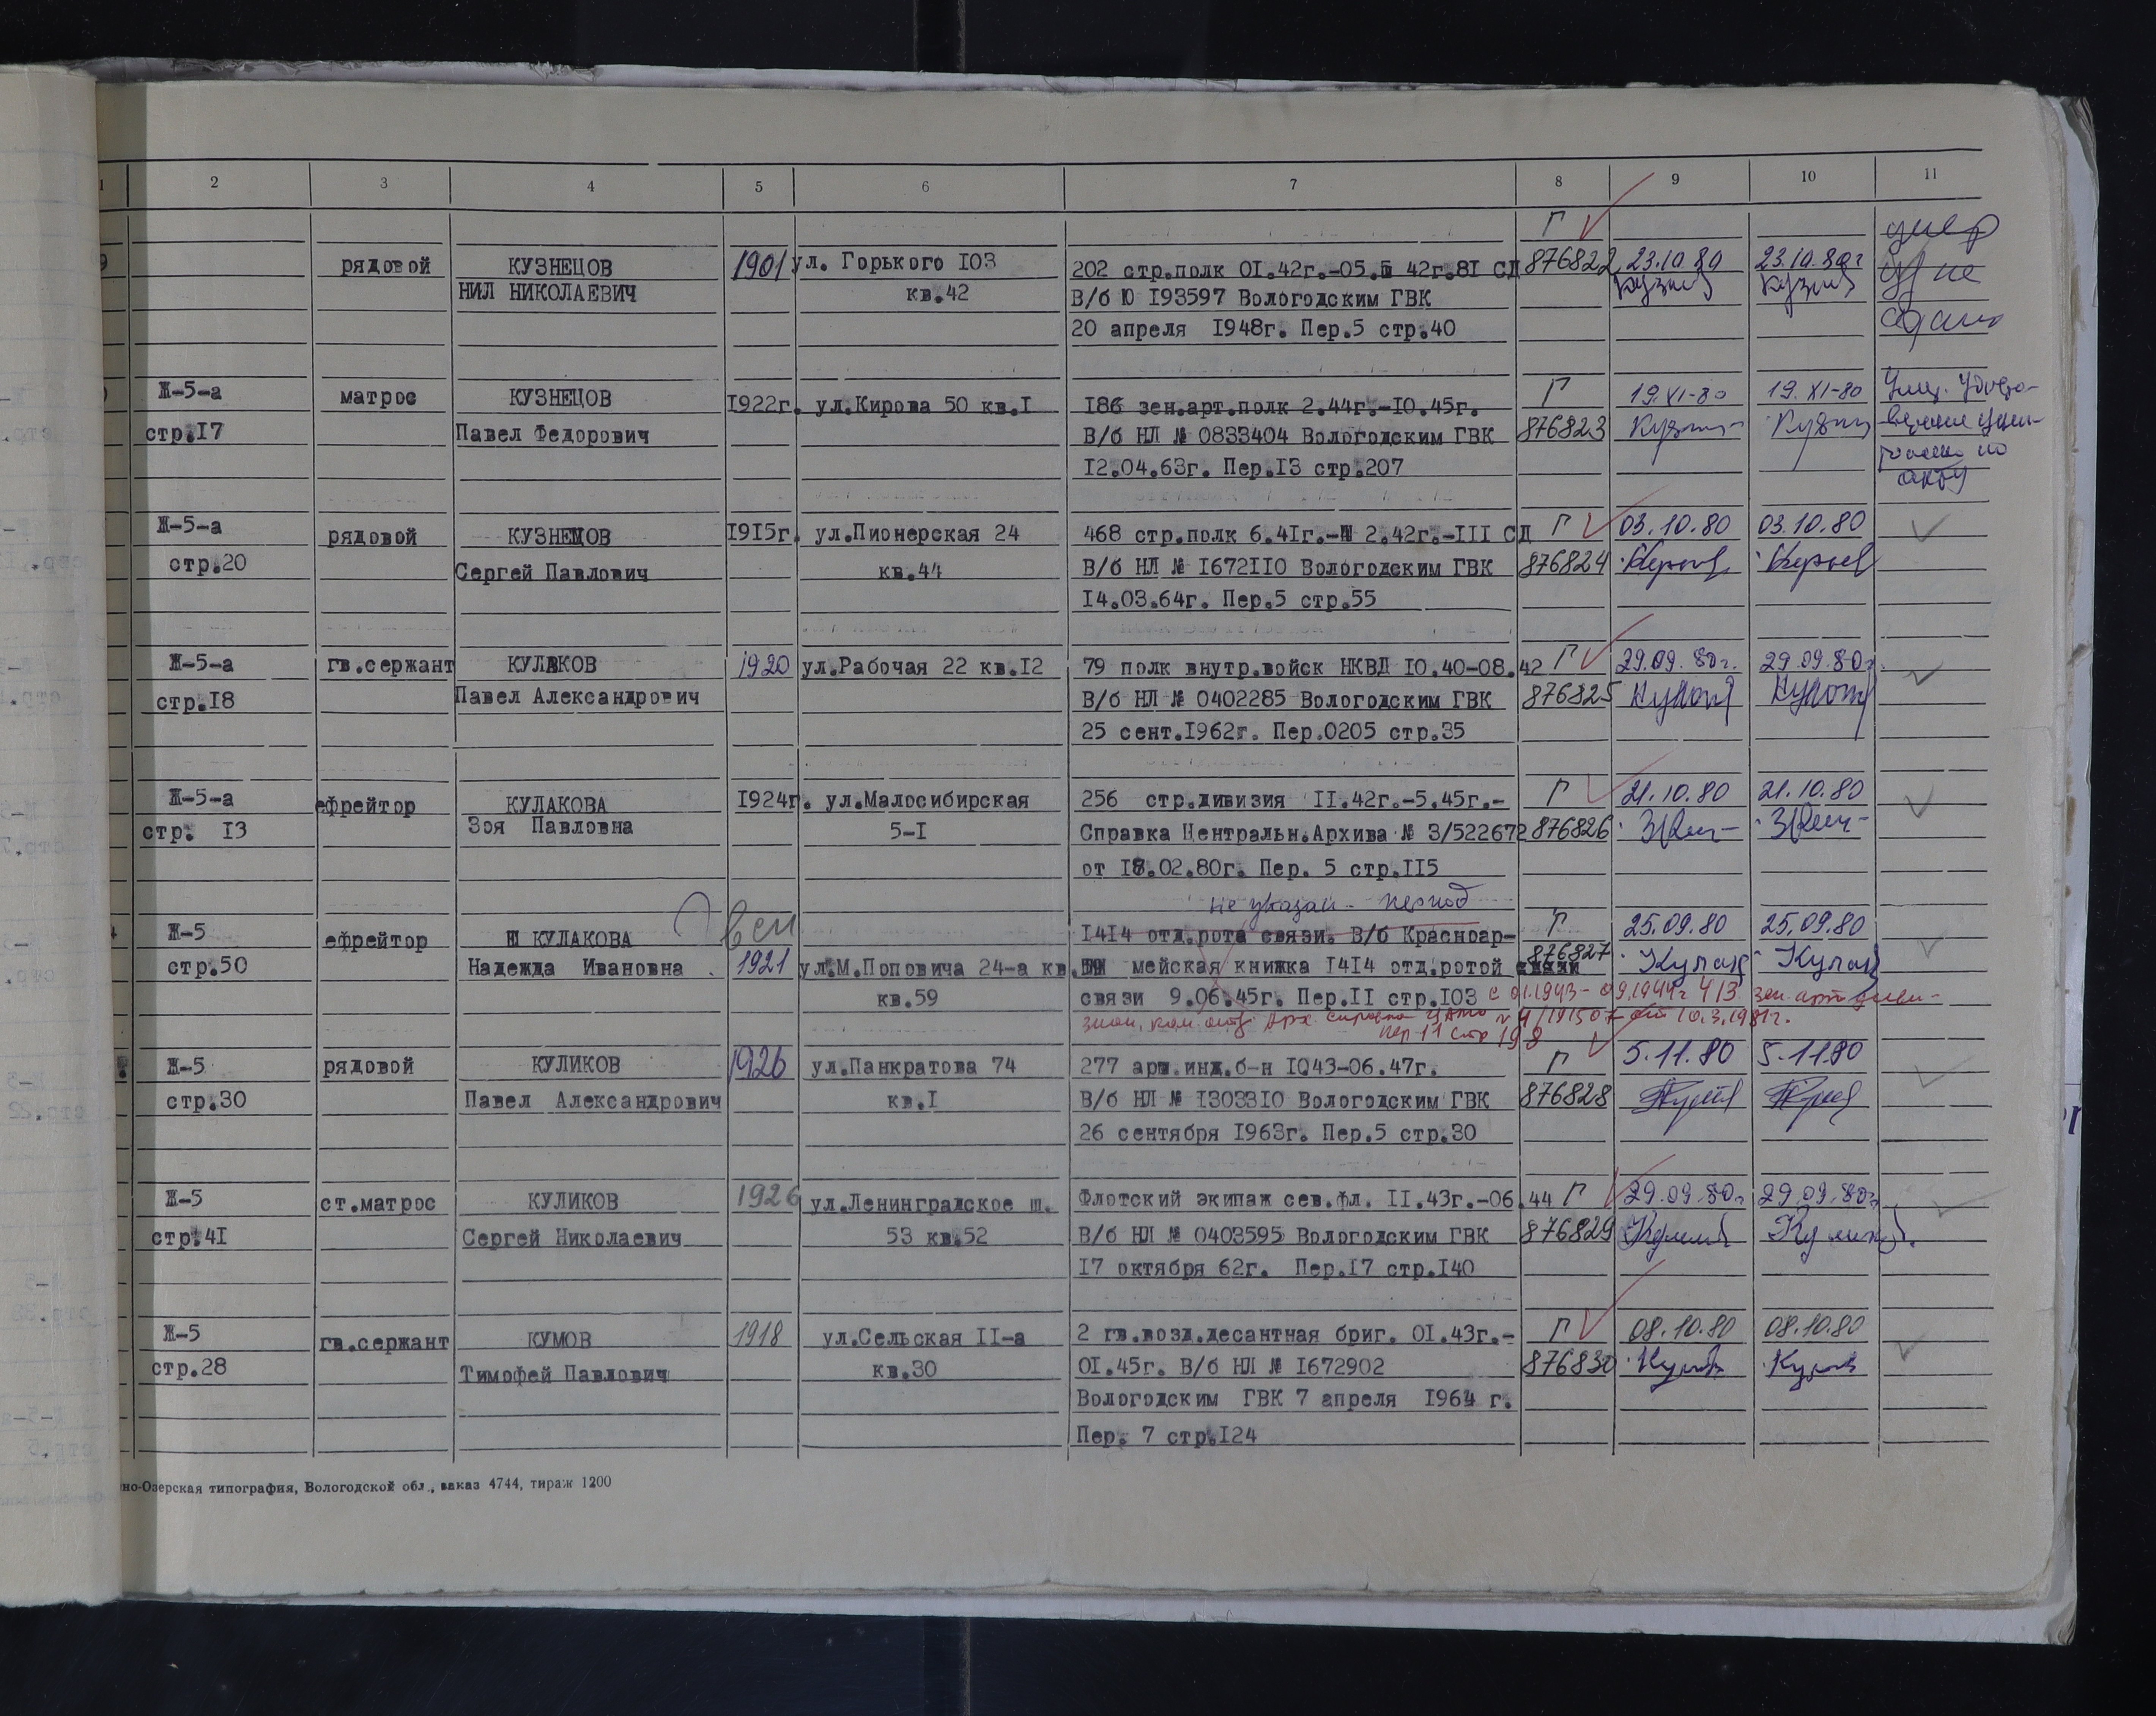 1 2 3 4 5 6 7 8 9 10 11
Г умер
9 рядовой КУЗНЕЦОВ 1901 ул. Горького 103 202 стр.полк 01.42г.-05. 42г.81 СД 876822 23.10.80 23.10.80г уд не
НИЛ НИКОЛАЕВИЧ кв.42 В/б Ю 193597 Вологодским ГВК сдано
20 апреля 1948г. Пер.5 стр.40
Ж-5-а матрос КУЗНЕЦОВ 1922г. ул.Кирова 50 кв.1 186 зен.арт.полк 2.44г.-10.45г. Г 19.XI-80 19.XI-80
стр.17 Павел Федорович В/б НЛ № 0833404 Вологодским ГВК 876823
12.04.63г. Пер.13 стр.207 по
акту
Ж-5-а рядовой КУЗНЕЦОВ 1915г. ул.Пионерская 24 468 стр.полк 6.41г.- 2.42г.-111 СД Г 03.10.80 03.10.80
стр.20 Сергей Павлович кв.44 В/б НЛ № 1672110 Вологодским ГВК 876824
14.03.64г. Пер.5 стр.55
Ж-5-а гв.сержант КУЛАКОВ 1920 ул.Рабочая 22 кв.12 79 полк внутр.войск НКВД 10.40-08.42 Г 29.09.80г. 29.09.80г.
стр.18 Павел Александрович В/б НЛ № 0402285 Вологодским ГВК 876825
25 сент.1962г. Пер.0205 стр.35
Ж-5-а ефрейтор КУЛАКОВА 1924г. ул.Малосибирская 256 стр.дивизия 11.42г.-5.45г.- Г 21.10.80 21.10.80
стр. 13 Зоя Павловна 5-1 Справка Центральн.Архива № 3/522672 876826
от 18.02.80г. Пер. 5 стр.115
не указан период
Ж-5 ефрейтор КУЛАКОВА 1414 отд.рота связи. В/б Красноар- Г 25.09.80 25.09.80
стр.50 Надежда Ивановна 1921 ул.М.Поповича 24-а кв. мейская книжка 1414 отд.ротой связи 876827 Кулак Кулак
кв.59 связи 9.06.45г. Пер.11 стр.103 с 01.1943- 09.1944г 413 зен. арт диви-
зион, Арх. справка ЦАМО от 10.3.1981г.
пер 11 стр 198
Ж-5 рядовой КУЛИКОВ 1926 ул.Панкратова 74 277 арм.инж.б-н 1043-06.47г. Г 5.11.80 5.11.80
стр.30 Павел Александрович кв.1 В/б НЛ № 1303310 Вологодским ГВК 876828
26 сентября 1963г. Пер.5 стр.30
Ж-5 ст.матрос КУЛИКОВ 1926 ул.Ленинградское ш. Флотский экипаж сев.фл. 11.43г.-06.44 Г 29.09.80г 29.09.80г
стр.41 Сергей Николаевич 53 кв.52 В/б НЛ № 0403595 Вологодским ГВК 876829 Куликов.
17 октября 62г. Пер.17 стр.140
Ж-5 гв.сержант КУМОВ 1918 ул.Сельская 11-а 2 гв.возд.десантная бриг. 01.43г.- Г 08.10.80 08.10.80
стр.28 Тимофей Павлович кв.30 01.45г. В/б НЛ № 1672902 876830
Вологодским ГВК 7 апреля 1964 г.
Пер. 7 стр.124
но-Озерская типография, Вологодской обл., заказ 4744, тираж 1200